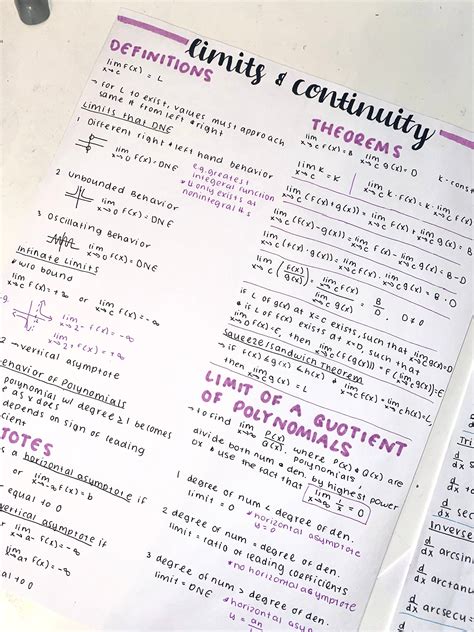 limits & continuity
DEFINITIONS
lim f(x) = L
x→c
→ for L to exist, values must approach
same # from left & right
Limits that DNE
1 Different right & left hand behavior
lim f(x) = DNE
x→0
e.g. greatest
integeral function
* L only exists at
nonintegral #s
2 Unbounded Behavior
lim f(x) = DNE
x→0
3 Oscillating Behavior
lim f(x) = DNE
x→0
Infinate Limits
* w/o bound
lim f(x) = +∞ or lim f(x) = -∞
x→c x→c
e.g.
lim f(x) = -∞
lim f(x) = +∞
→ vertical asymptote
Behavior of Polynomials
polynomial w/ degree ≥ 1 becomes
as x does
depends on sign of leading
a horizontal asymptote if
or lim f(x) = b
x→-∞
equal to 0
vertical asymptote if
THEOREMS
lim f(x) = B lim g(x) =
x→c x→c
lim k = k lim k · f(x) =
x→c x→c
lim (f(x)+g(x)) = lim f(x) + lim g(x) =
x→c x→c x→c
lim (f(x)-g(x)) = lim f(x) - lim g(x) = B - D
x→c x→c x→c
lim (f(x)·g(x)) = lim f(x) · lim g(x) = B · D
x→c x→c x→c
lim (f(x)/g(x)) = lim f(x) / lim g(x) = B/D, D ≠ 0
x→c x→c x→c
* if L of g(x) at x=c exists, such that lim g(x) = D
& if L of f(x) exists at x=D, such that
lim f(x) = E, then lim f(g(x)) = f(lim g(x)) = E
Squeeze/Sandwich Theorem
→ if f(x) ≤ g(x) ≤ h(x) &
then lim g(x) = L
LIMIT OF A QUOTIENT
OF POLYNOMIALS
→ to find lim P(x)/Q(x), where P(x) & Q(x) are
polynomials,
divide both num & den. by highest power
of x & use the fact that lim 1/x = 0
x→∞
1 degree of num < degree of den.
limit = 0 * horizontal asymptote
y = 0
2 degree of num = degree of den.
limit = ratio of leading coefficients
* no horizonal asymptote
3 degree of num > degree of den.
limit = DNE
* horizontal asymptote
d/dx sec
Inverse
d/dx arcsin
d/dx arctan
d/dx arcsecu